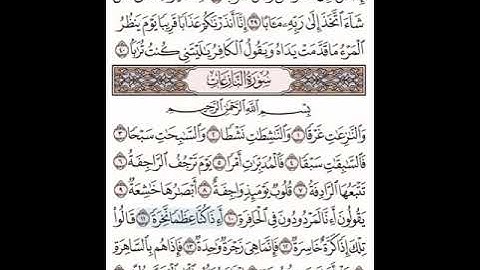 شَآءَ ٱتَّخَذَ إِلَىٰ رَبِّهِۦ مَـَٔابًا ٣٩ إِنَّآ أَنذَرْنَٰكُمْ عَذَابًا قَرِيبًا يَوْمَ يَنظُرُ
ٱلْمَرْءُ مَا قَدَّمَتْ يَدَاهُ وَيَقُولُ ٱلْكَافِرُ يَٰلَيْتَنِى كُنتُ تُرَٰبًۢا ٤٠
سُورَةُ النَّازِعَاتِ
بِسْمِ ٱللَّهِ ٱلرَّحْمَٰنِ ٱلرَّحِيمِ
وَٱلنَّٰزِعَٰتِ غَرْقًا ١ وَٱلنَّٰشِطَٰتِ نَشْطًا ٢ وَٱلسَّٰبِحَٰتِ سَبْحًا ٣
فَٱلسَّٰبِقَٰتِ سَبْقًا ٤ فَٱلْمُدَبِّرَٰتِ أَمْرًا ٥ يَوْمَ تَرْجُفُ ٱلرَّاجِفَةُ ٦
تَتْبَعُهَا ٱلرَّادِفَةُ ٧ قُلُوبٌ يَوْمَئِذٍ وَاجِفَةٌ ٨ أَبْصَٰرُهَا خَٰشِعَةٌ ٩
يَقُولُونَ أَءِنَّا لَمَرْدُودُونَ فِى ٱلْحَافِرَةِ ١٠ أَءِذَا كُنَّا عِظَٰمًا نَّخِرَةً ١١ قَالُوا۟
تِلْكَ إِذًا كَرَّةٌ خَاسِرَةٌ ١٢ فَإِنَّمَا هِىَ زَجْرَةٌ وَٰحِدَةٌ ١٣ فَإِذَا هُم بِٱلسَّاهِرَةِ